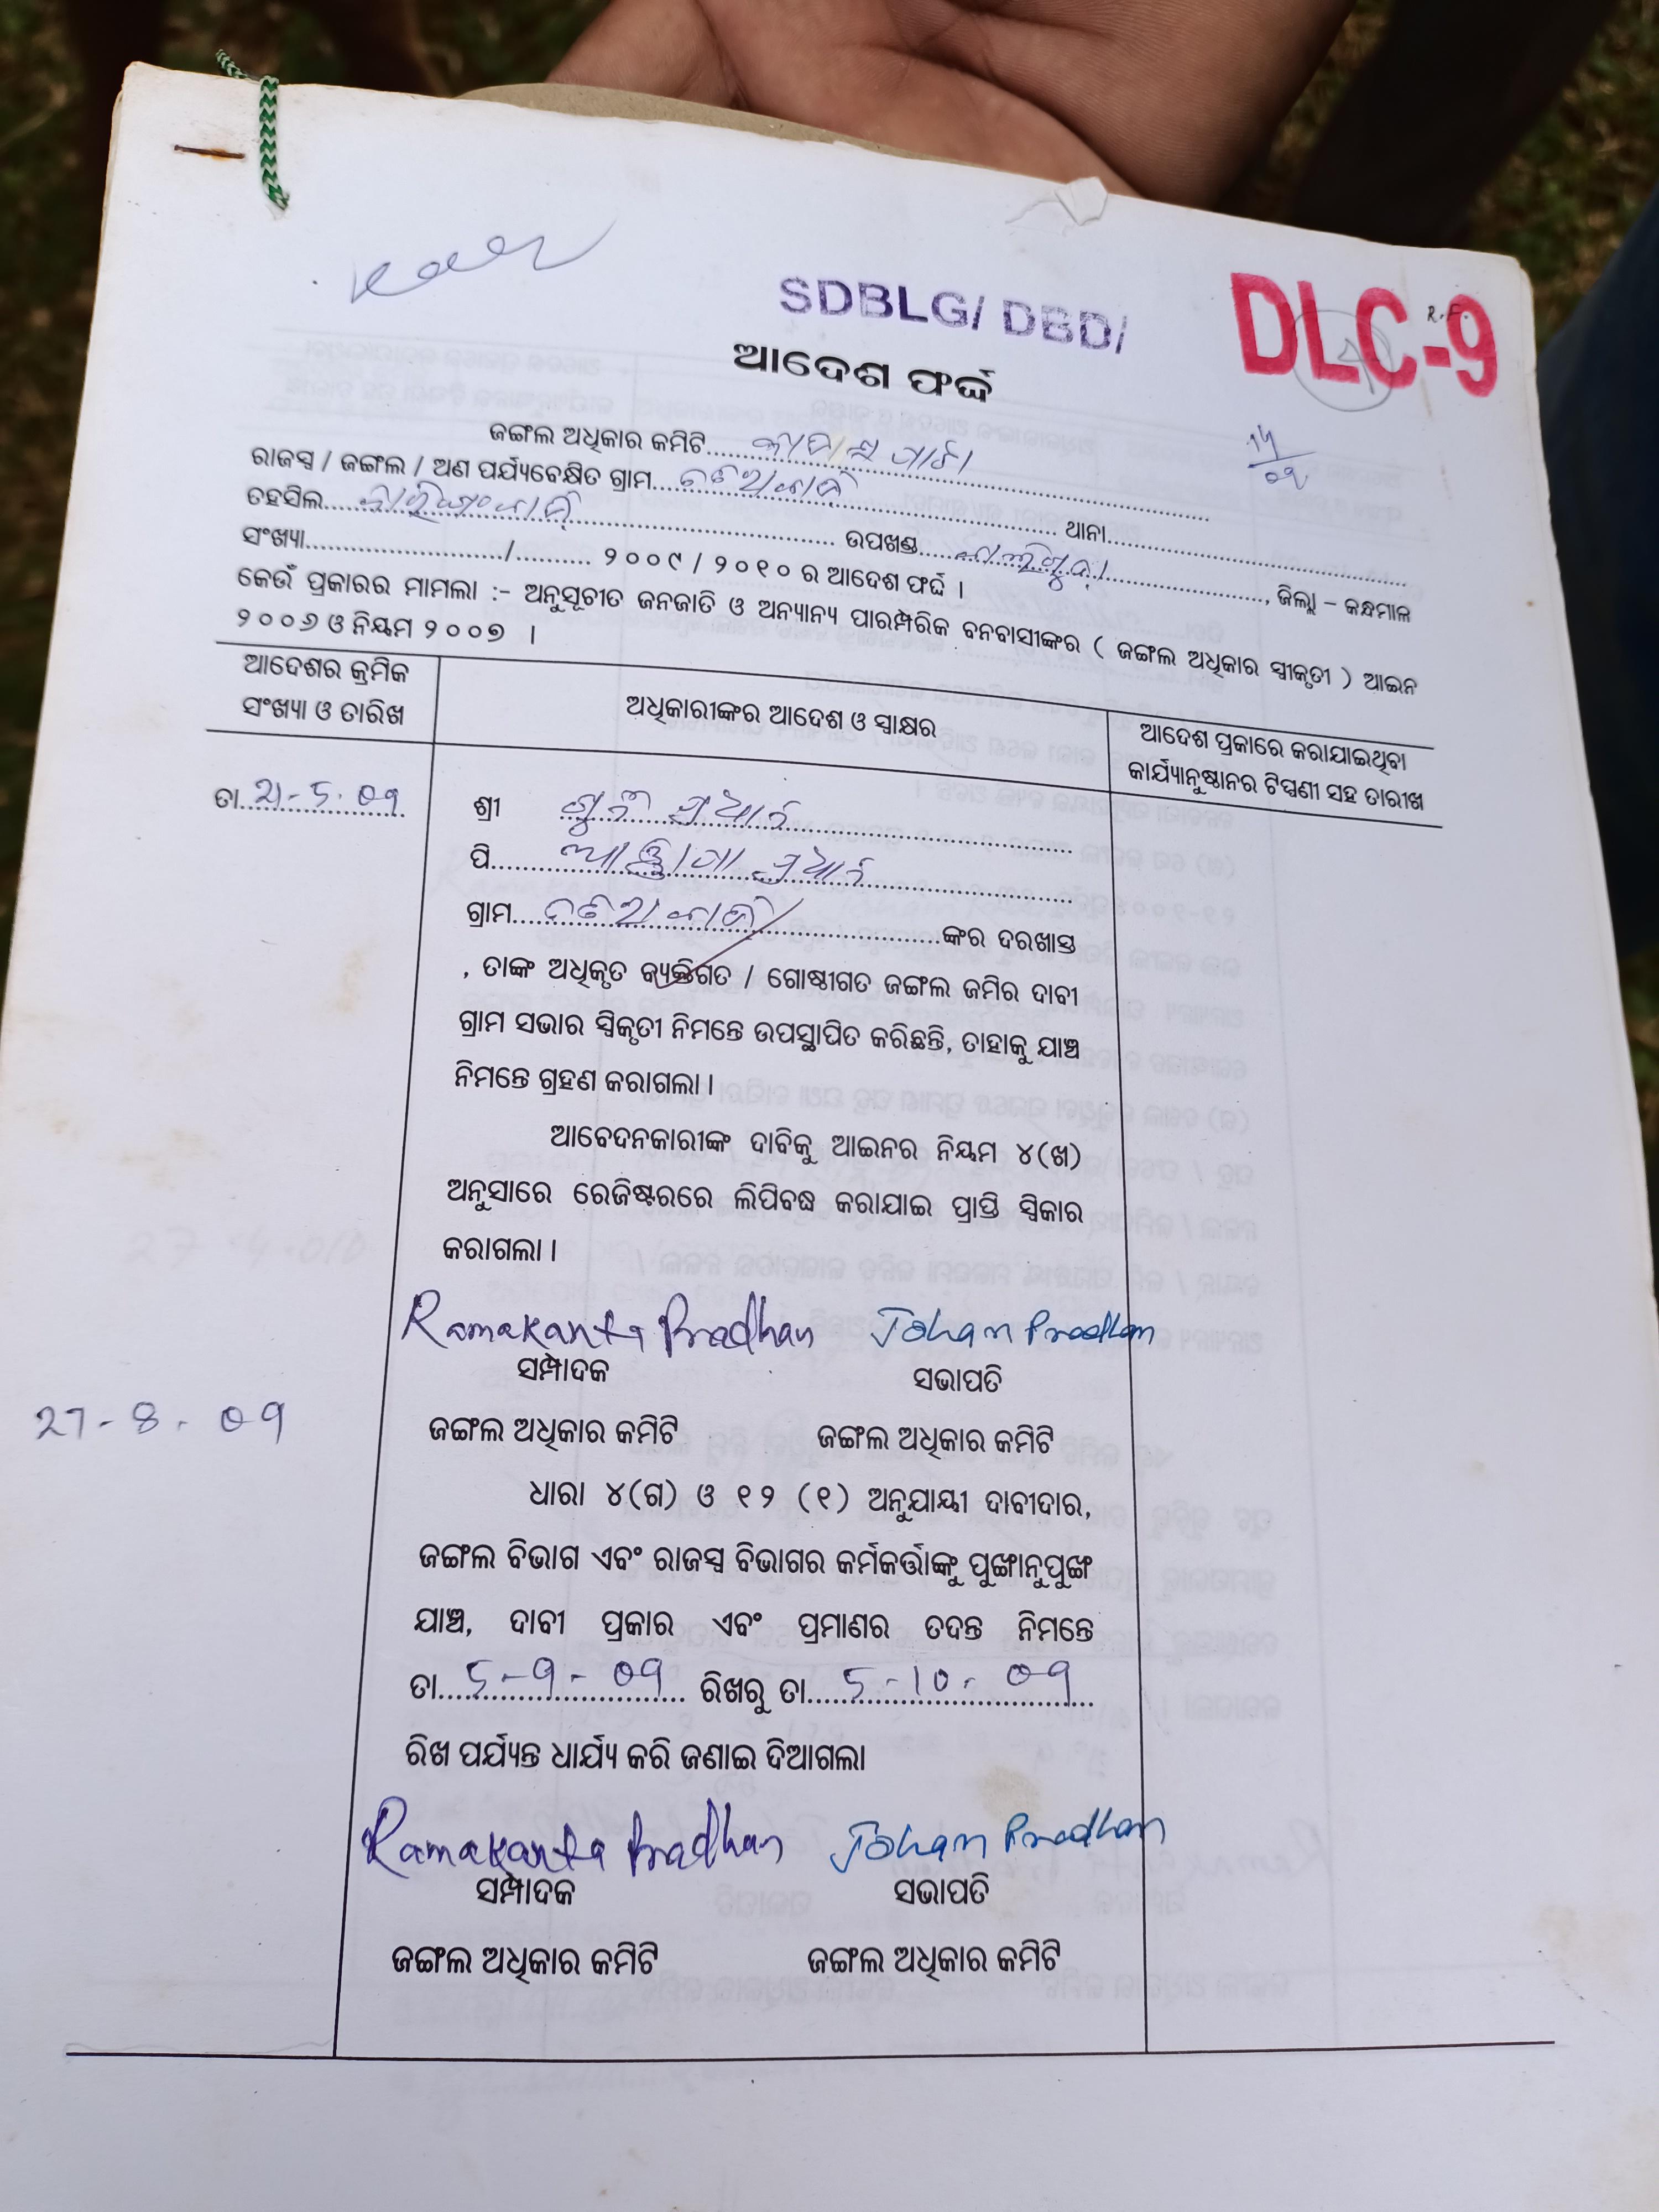 SDBLG/ DBD/
DLC-9
R.F.
ଆଦେଶ ଫର୍ଦ୍ଦ
ଜଙ୍ଗଲ ଅଧିକାର କମିଟି
ରାଜସ୍ୱ / ଜଙ୍ଗଲ / ଅଣ ପର୍ଯ୍ୟବେକ୍ଷିତ ଗ୍ରାମ ଥାନା
ତହସିଲ ଉପଖଣ୍ଡ , ଜିଲ୍ଲା – କନ୍ଧମାଳ
ସଂଖ୍ୟା / ୨୦୦୯ / ୨୦୧୦ ର ଆଦେଶ ଫର୍ଦ୍ଦ ।
କେଉଁ ପ୍ରକାରର ମାମଲା :- ଅନୁସୂଚୀତ ଜନଜାତି ଓ ଅନ୍ୟାନ୍ୟ ପାରମ୍ପରିକ ବନବାସୀଙ୍କର ( ଜଙ୍ଗଲ ଅଧିକାର ସ୍ୱୀକୃତୀ ) ଆଇନ
୨୦୦୬ ଓ ନିୟମ ୨୦୦୭ ।
ଆଦେଶର କ୍ରମିକ
ସଂଖ୍ୟା ଓ ତାରିଖ
ଅଧିକାରୀଙ୍କର ଆଦେଶ ଓ ସ୍ୱାକ୍ଷର
ଆଦେଶ ପ୍ରକାରେ କରାଯାଇଥିବା
କାର୍ଯ୍ୟାନୁଷ୍ଠାନର ଟିପ୍ପଣୀ ସହ ତାରୀଖ
ତା
ଶ୍ରୀ ପ୍ରଧାନ
ପି ପ୍ରଧାନ
ଗ୍ରାମ ଙ୍କର ଦରଖାସ୍ତ
, ତାଙ୍କ ଅଧିକୃତ ବ୍ୟକ୍ତିଗତ / ଗୋଷ୍ଠୀଗତ ଜଙ୍ଗଲ ଜମିର ଦାବୀ
ଗ୍ରାମ ସଭାର ସ୍ୱିକୃତୀ ନିମନ୍ତେ ଉପସ୍ଥାପିତ କରିଛନ୍ତି, ତାହାକୁ ଯାଞ୍ଚ
ନିମନ୍ତେ ଗ୍ରହଣ କରାଗଲା ।
ଆବେଦନକାରୀଙ୍କ ଦାବିକୁ ଆଇନର ନିୟମ ୪(ଖ)
ଅନୁସାରେ ରେଜିଷ୍ଟରରେ ଲିପିବଦ୍ଧ କରାଯାଇ ପ୍ରାପ୍ତି ସ୍ୱିକାର
କରାଗଲା ।
Ramakanta Pradhan Johan Pradhan
ସମ୍ପାଦକ ସଭାପତି
ଜଙ୍ଗଲ ଅଧିକାର କମିଟି ଜଙ୍ଗଲ ଅଧିକାର କମିଟି
27-8-09
ଧାରା ୪(ଗ) ଓ ୧୨ (୧) ଅନୁଯାୟୀ ଦାବୀଦାର,
ଜଙ୍ଗଲ ବିଭାଗ ଏବଂ ରାଜସ୍ୱ ବିଭାଗର କର୍ମକର୍ତ୍ତାଙ୍କୁ ପୁଙ୍ଖାନୁପୁଙ୍ଖ
ଯାଞ୍ଚ, ଦାବୀ ପ୍ରକାର ଏବଂ ପ୍ରମାଣର ତଦନ୍ତ ନିମନ୍ତେ
ତା 5-9-09 ରିଖରୁ ତା 5-10-09
ରିଖ ପର୍ଯ୍ୟନ୍ତ ଧାର୍ଯ୍ୟ କରି ଜଣାଇ ଦିଆଗଲା
Ramakanta Pradhan Johan Pradhan
ସମ୍ପାଦକ ସଭାପତି
ଜଙ୍ଗଲ ଅଧିକାର କମିଟି ଜଙ୍ଗଲ ଅଧିକାର କମିଟି